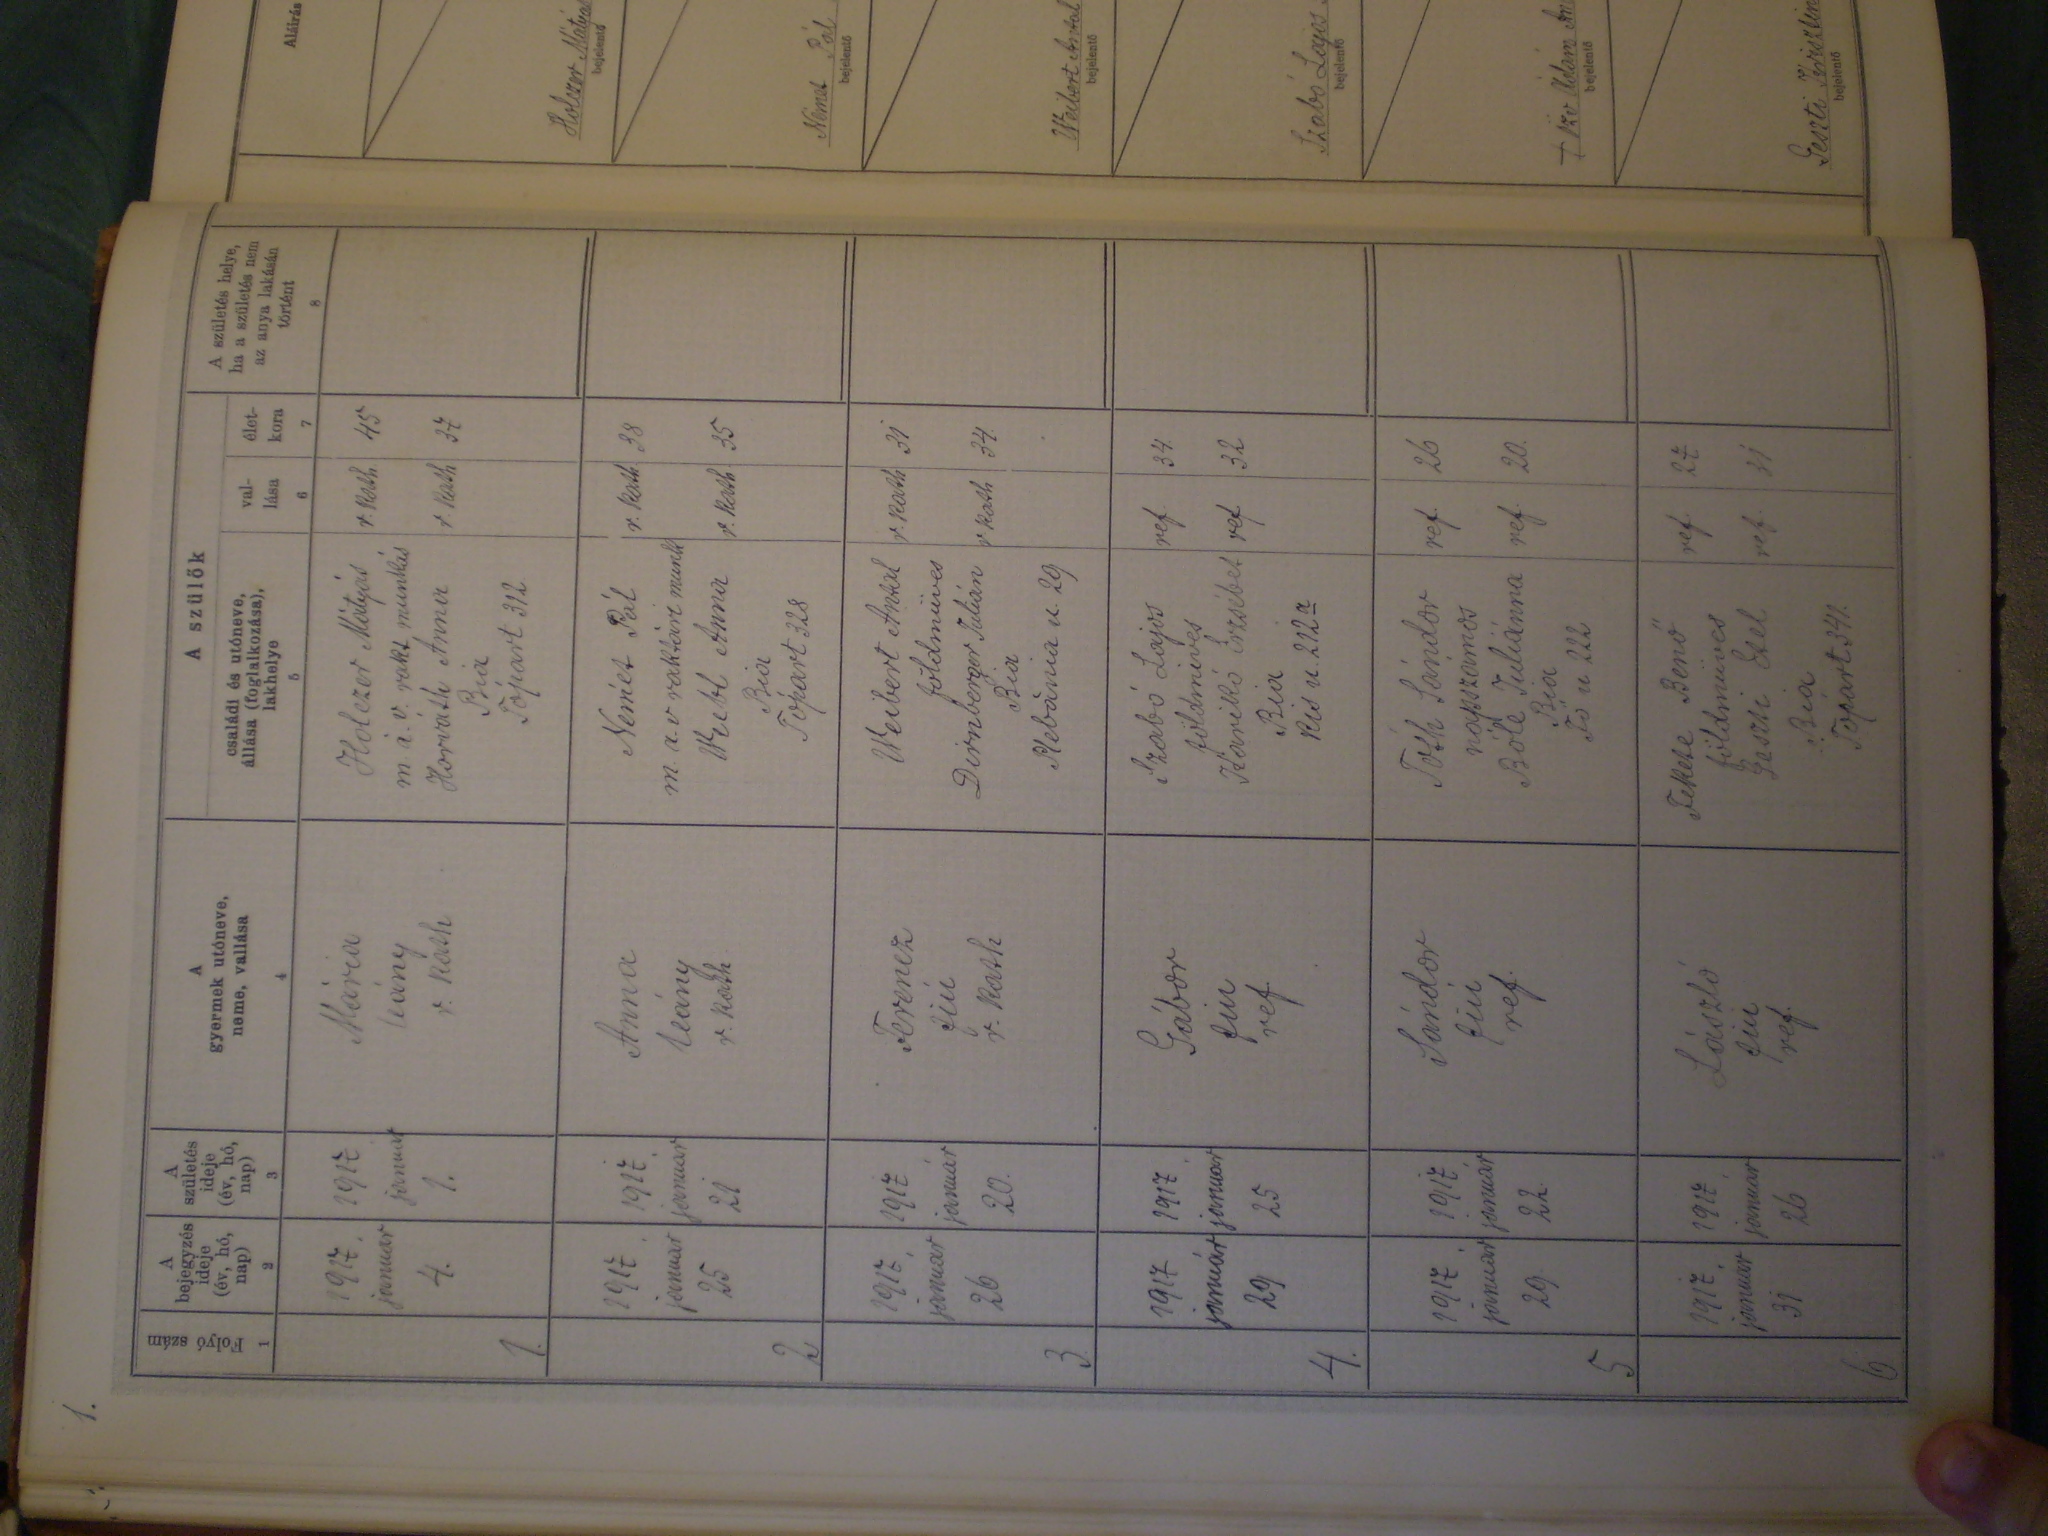 1.
Folyó szám
1
A bejegyzés ideje (év, hó, nap)
2
A születés ideje (év, hó, nap)
3
A gyermek utóneve, neme, vallása
4
A szülők
családi és utóneve, állása (foglalkozása), lakhelye
5
val-
lása
6
élet-
kora
7
A születés helye, ha a születés nem az anya lakásán történt
8
Aláírás
1.
1917. január 4.
1917. január 1.
Mária
leány
r. kath
Holczer Mátyás
m. á. v. rakt munkás
Horváth Anna
Bia
Tópart 312
r. kath
r. kath
45
37
Holczer Mátyás
bejelentő
2
1917. január 25
1917. január 21
Anna
leány
r. kath
Német Pál
m. a. v raktári munk
Wekl Anna
Bia
Tópart 328
r. kath
r. kath
38
35
Német Pál
bejelentő
3
1917. január 26
1917. január 20.
Ferencz
fiú
r. kath
Weibert Antal
földmüves
Dirnberger Julián
Bia
Plebánia u. 29
r. kath
r kath
31
34.
Weibert Antal
bejelentő
4.
1917 január 29
1917. január 25
Gábor
fiu
ref
Szabó Lajos
földmives
Karikó Erzsébet
Bia
Kis u. 212 a
ref
ref
34.
32
Szabó Lajos
bejelentő
5
1917. január 29.
1917. január 22.
Sándor
fiú
ref.
Tóth Sándor
napszámos
Bóle Juliánna
Bia
Fő u 222
ref.
ref.
26
20.
bejelentő
6
1917. január 31
1917. január 26
László
fiu
ref.
Fekete Benő
földmüves
Geszti Etel
Bia
Topart 341.
ref.
ref.
27
31
Geszti Krisztina
bejelentő